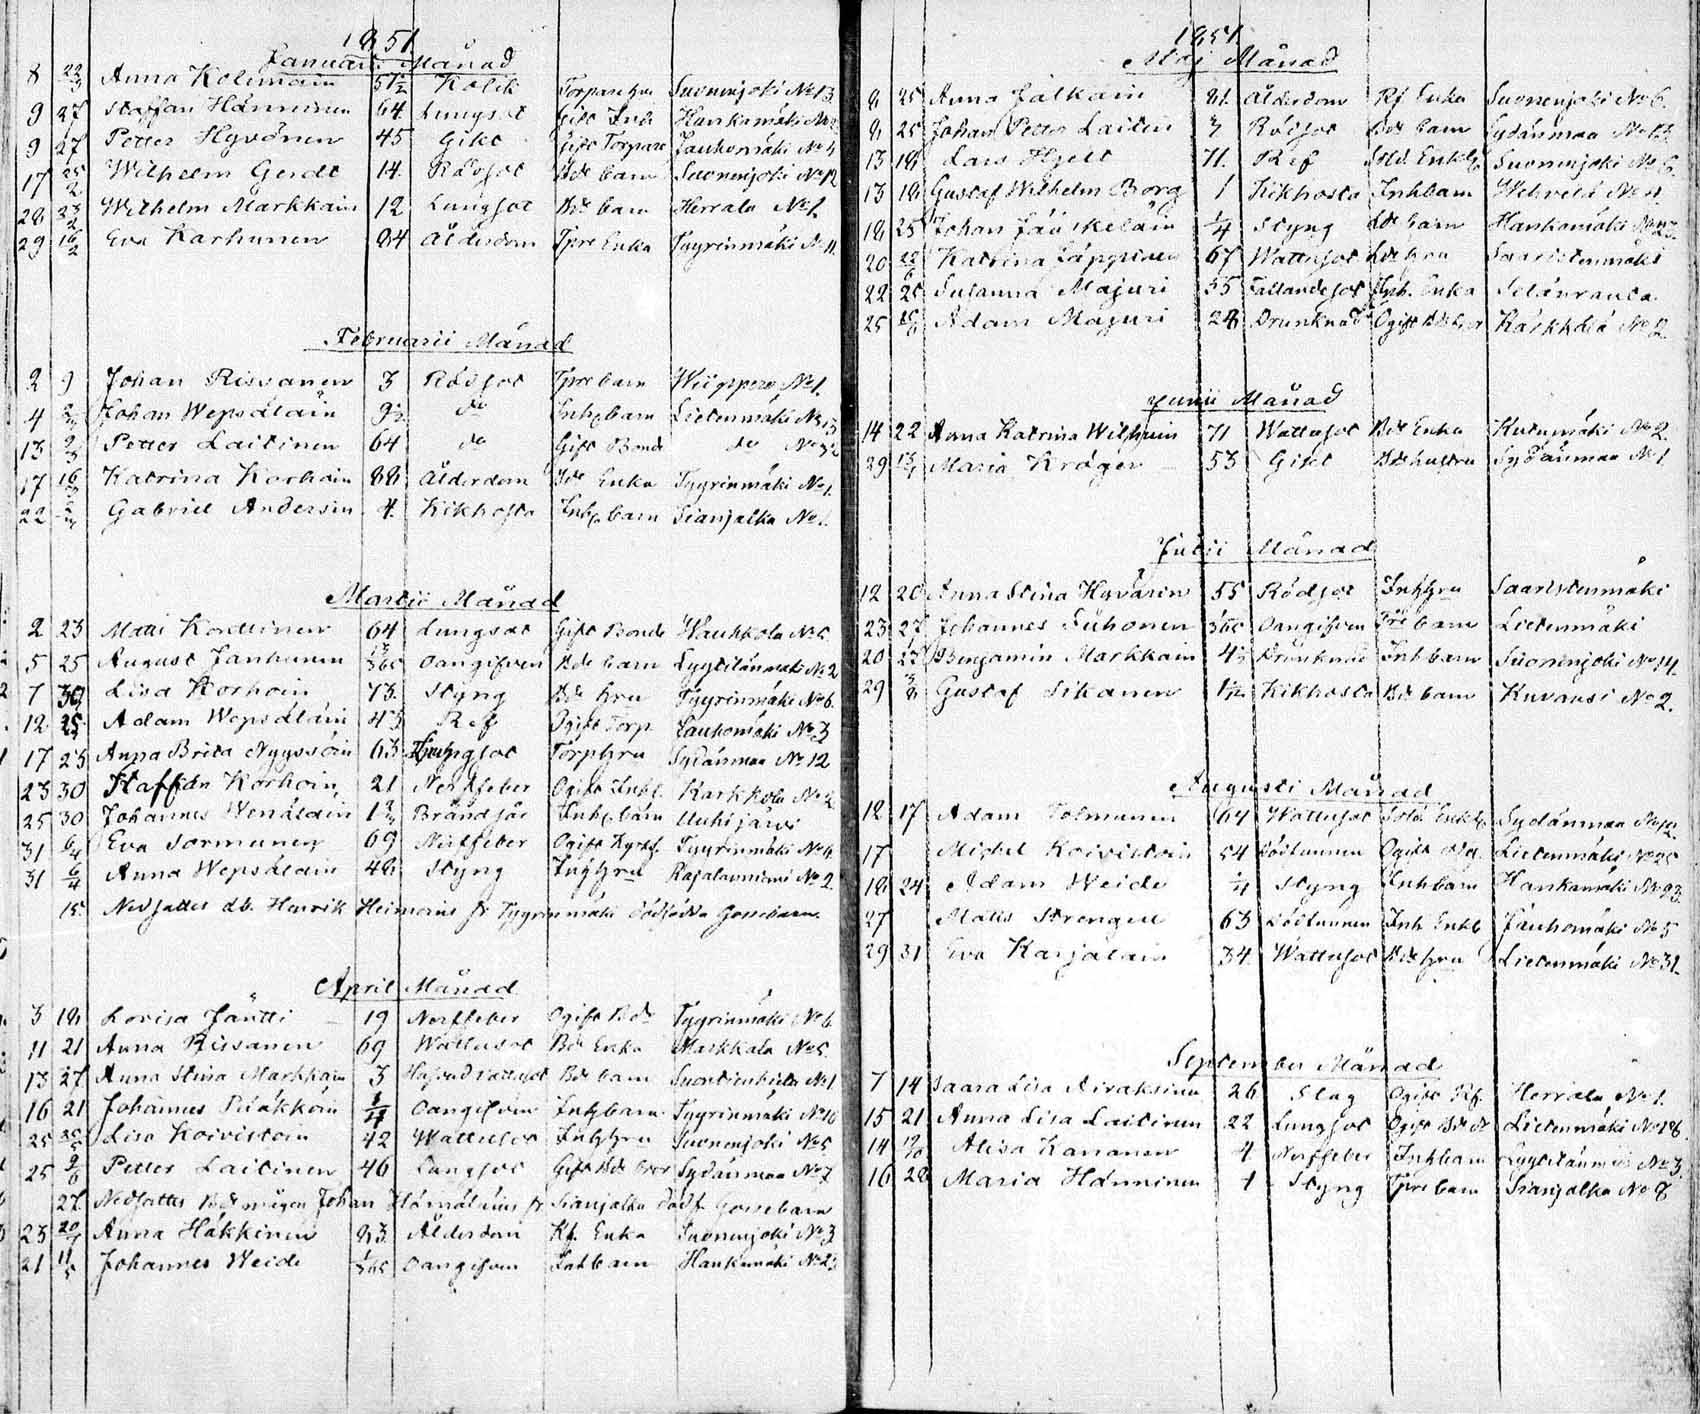 1851.
Januarii Månad
8 22/3 Anna Kolemain 51½ Kolik Torpare hru Suonenjoki No 13
9 27 Staffan Hänninen 64 Lungsot Gift Inh Hankamäki
9 27 Petter Hyvönen 45 Gikt Gift Torpare Jauhomäki No 4
17 25/2 Wilhelm Gerdt 14 Rödsot Bde barn Suonenjoki No 12
28 23/2 Wilhelm Markkain 12 Lungsot Bde barn Herrala No 1
29 16/2 Eva Karhunen 84 Ålderdom Tpre Enka Tyyrinmäki No 11
Februarii Månad
2 9 Johan Risvanen 3 Rödsot Tpre barn Wiippero No 1.
4 Johan Wepsäläin 9½ do Inh barn Lietenmäki No 13
13 2/3 Petter Laitinen 64 do Gift Bonde do No 32
17 16 Katrina Korhoin 88 Ålderdom Bde Enka Tyyrinmäki No 1.
22 Gabriel Andersin 4 Kikhosta Inh barn Sianjalka No 1.
Martii Månad
2 23 Matti Konttinen 64 Lungsot Gift Bonde Wauhkola No 5
5 25 August Janhunen 13/365 Oangifven Bde barn Lyytilänmäki No 2
7 30 Lisa Korhoin 73 Styng Bde hru Tyyrinmäki No 6.
12 25 Adam Wepsäläin 43 Ref Ogift Torp Jauhomäki No 3
17 23 Anna Brita Nyyssöin 63 Lungsot Torp hru Sydänmaa No 12
23 30 Staffan Korhoin, 21 Nerffeber Ogift Inh. Karkkola No 2
25 30 Johannes Wenäläin 1 Brändsår Inh barn Uuhijärvi
31 6/4 Eva Sormunen 69 Nerffeber Ogift Tyyrinmäki No 4
31 6/4 Anna Wepsäläin 48 Styng Inh hru Rajalanniemi No 2
15 Nedsattes db. Henrik Heimonens fr Tyyrinmäki dödfödda Gossebarn.
April Månad
3 18 Lovisa Jäntti 19 Nerffeber Ogift Bde Tyyrinmäki No 6
11 21 Anna Riisanen 69 Wattusot Bde Enka Markkala No 5.
13 27 Anna Stina Markkain 3 Hufvud vattusot Bde barn Suontienhieta No 1
16 21 Johannes Puäkköin 1/4 Oangifven Inh barn Tyyrinmäki No 10
25 25/5 Lisa Koivistoin 42 Wattusot Inh hru Suonenjoki No 5
25 9/6 Petter Laitinen 46 Lungsot Gift Bde bror Sydänmaa No 7
27. Nedsattes Bde mågen Johan Hämäläins fr Sianjalka Dödf. Gossebarn
23 20 Anna Häkkinen 83 Ålderdom Rf. Enka Suonenjoki No 3
21 11/5 Johannes Weide 1/365 Oangifven Inh barn Hankamäki No 23
1851.
Maj Månad
8 25 Anna Jalkain 81. Ålderdom Rf Enka Suonenjoki No 6.
8 25 Johan Petter Laitin Rödsot Bde barn Sydänmaa No 13
13 18 Lars Hjelt 71. Ref Sold. Enkl Suonenjoki No 6.
13 18 Gustaf Wilhelm Borg 1 Kikhosta Inh barn Wehvilä No 4
18 25 Johan Jääskeläin 1/4 Styng Bde barn Hankamäki No 23
20 22/6 Katrina Läppinen 67 Wattusot Bde hru Saaristenmäki
22 25 Susanna Majuri 55 Fallandesot Inh. Enka Selänranta
25 15/6 Adam Majuri 28 Drunknad Ogift Bde bror Karkkola No 2
Junii Månad
14 22 Anna Katrina Wilhuin 71 Wattusot Bde Enka Kutumäki No 2.
29 13/7 Maria Kröger 53 Gikt Bde hustru Sydänmaa No 1
Julii Månad
12 20 Anna Stina Hyvärin 55 Rödsot Inh hru Saaristenmäki
23 27 Johannes Suhonen 3/365 Oangifven Tpre barn Lietenmäki
20 23 Benjamin Markkain 4½ Drunknad Inh barn Suonenjoki No 14.
29 3/8 Gustaf Sikanen 1/12 Kikhosta Bde barn Kuvansi No 2.
Augusti Månad
12 17 Adam Tolmunen 64 Wattusot Sold Enkl Sydänmaa No 12.
17 Michel Koivistoin 54 Dödfunnen Ogift Lietenmäki No 25
18 24 Adam Weide 1/4 Styng Inh barn Hankamäki No 23.
27 Matts Strengell 63 Dödfunnen Inh Enkl Jauhomäki No 5
29 31 Eva Karjalain 34 Wattusot Bde hru Lietenmäki No 31.
September Månad
7 14 Saara Lisa Airaksinen 26 Slag Ogift Rf. Herrala No 1.
15 21 Anna Lisa Laitinen 22 Lungsot Ogift Bde dr Lietenmäki No 18
14 12/10 Alisa Kananen 4 Nerffeber Inh barn Lyytilänmäki No 3.
16 28 Maria Hänninen 1 Styng Tpre barn Sianjalka No 8